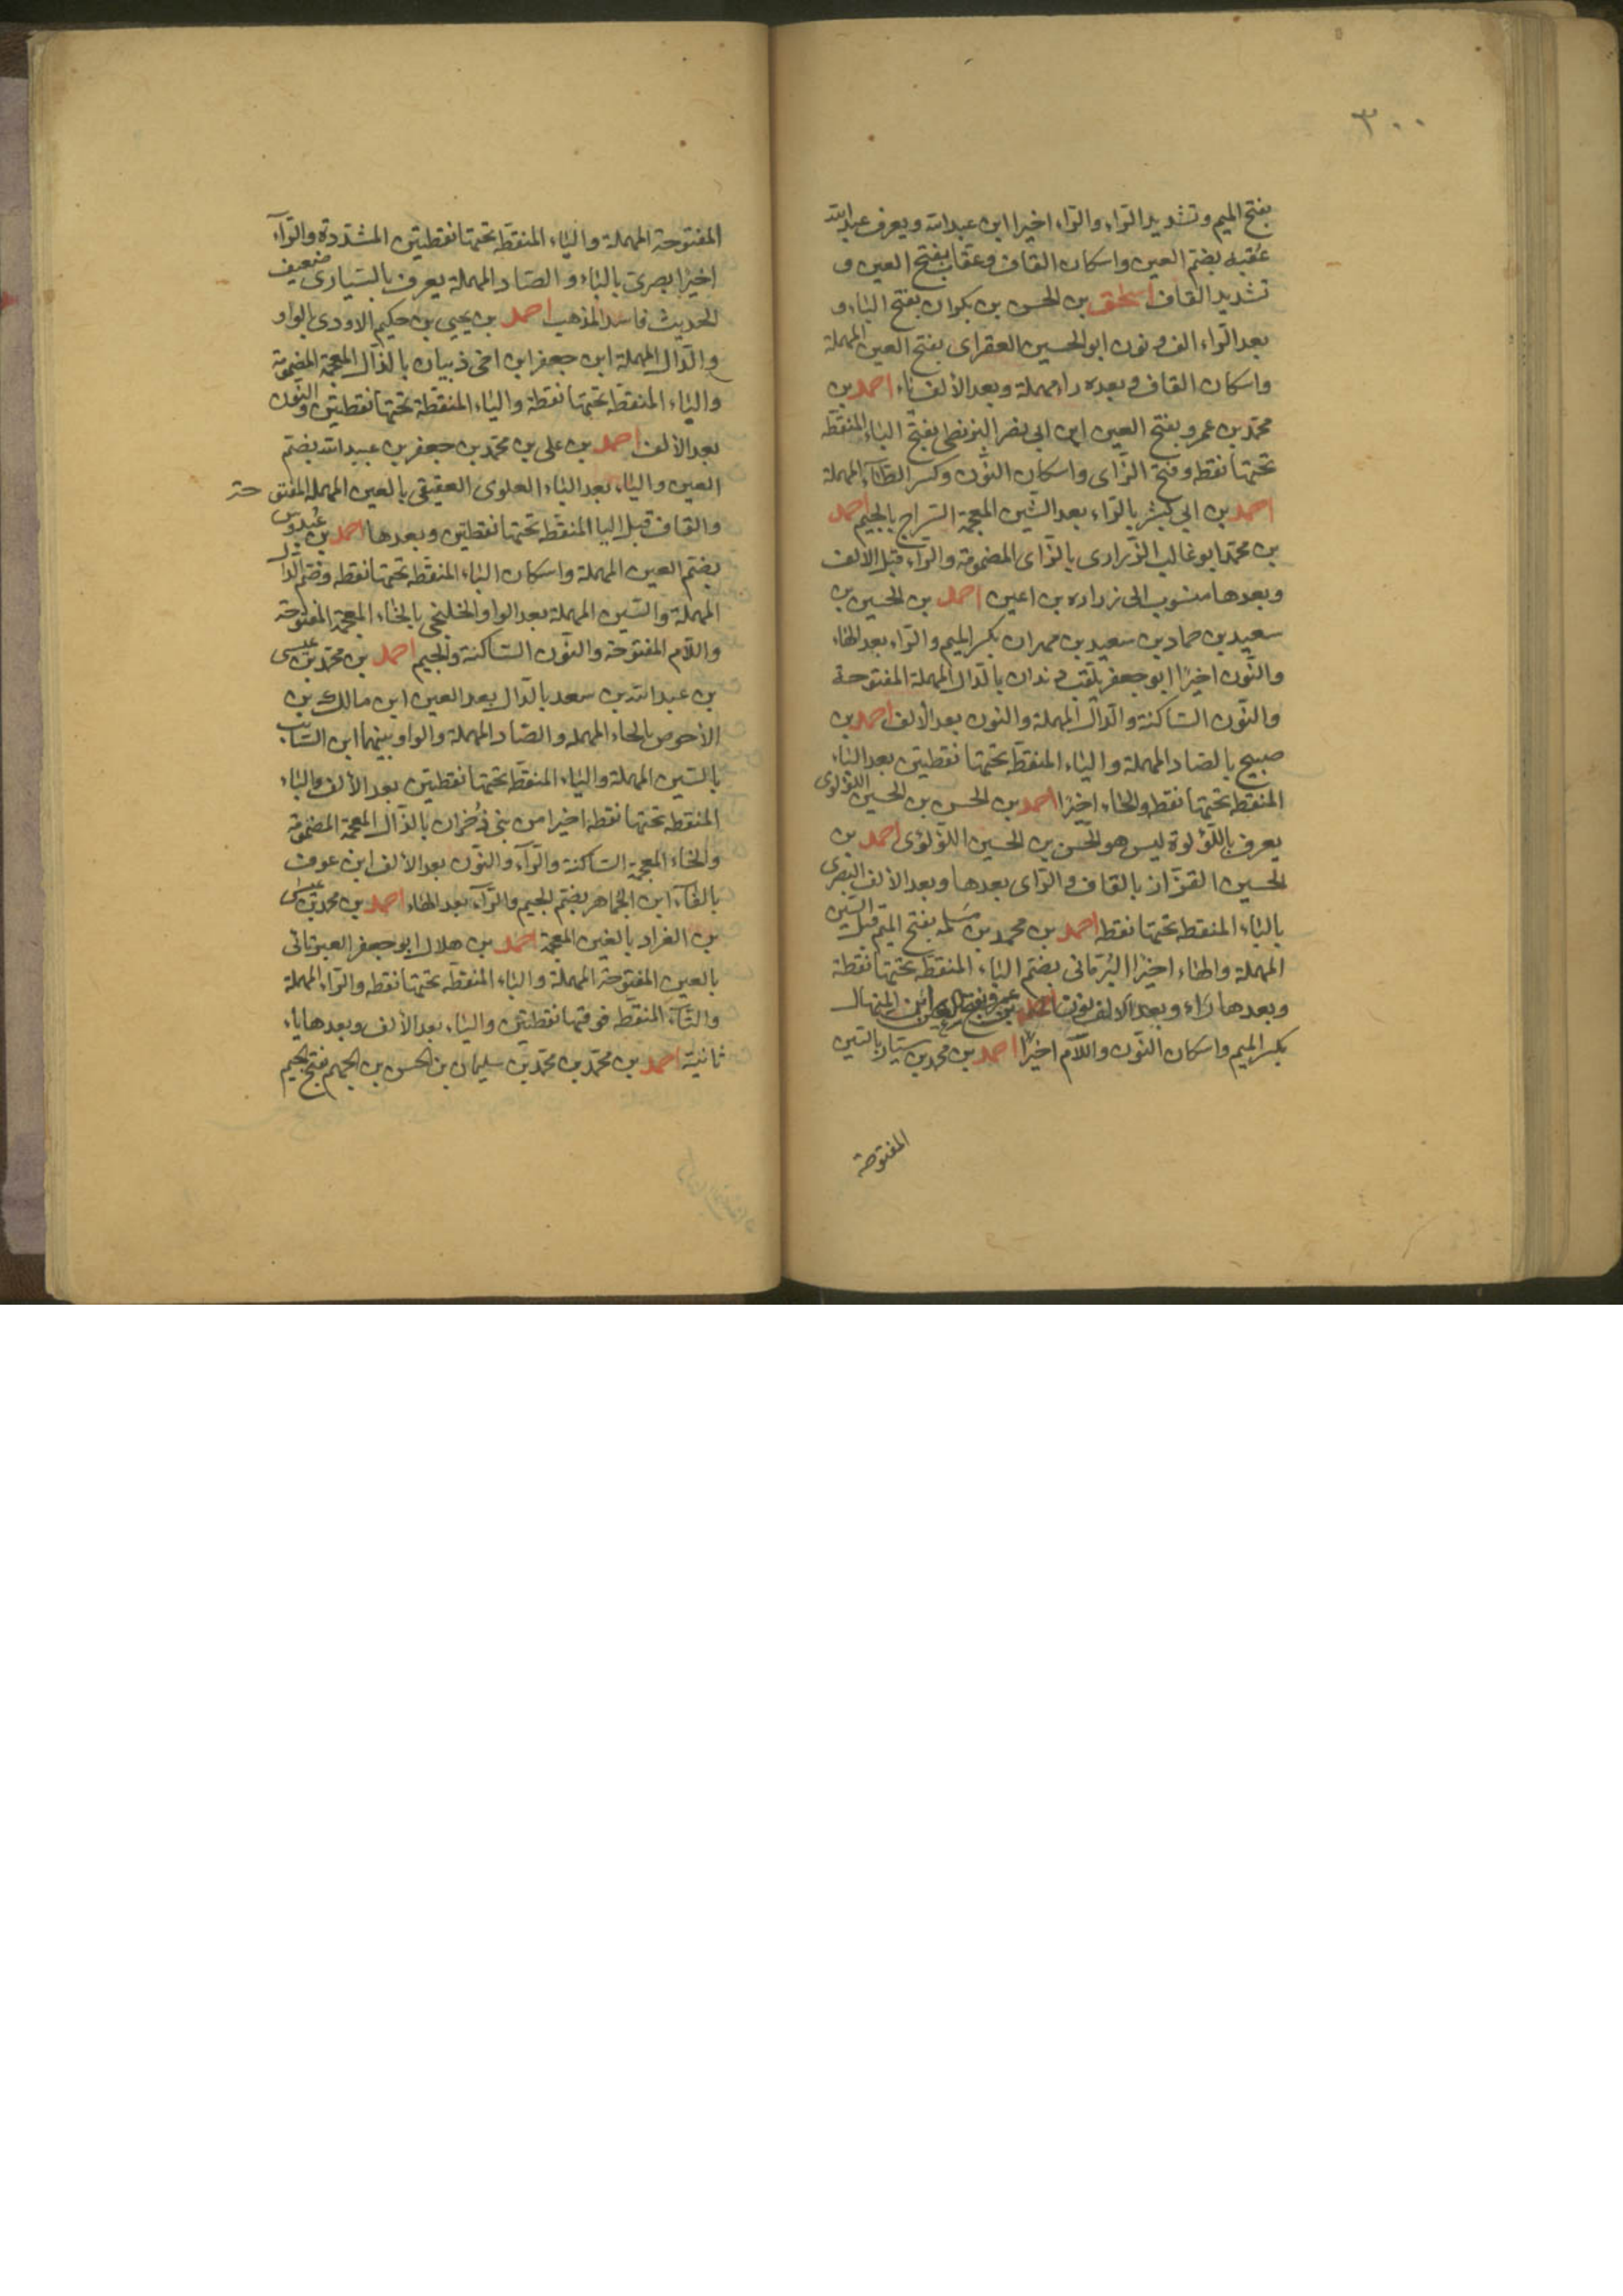 ٣٠٠
بفتح الميم وتشديد الراء والراء اخيرا ابن عبدالله ويعرف عبدالله
عُقبه بضم العين واسكان القاف وعقاب بفتح العين و
تشديد القاف اسحق بن الحسن بن بكران بفتح الباء و
بعد الراء الف ونون ابو الحسين العقراى بفتح العين المهملة
واسكان القاف وبعده راء مهملة وبعد الألف ياء احمد بن
محمد بن عمرو بفتح العين ابن ابي نصر البزنطى بفتح الباء المنقطه
تحتها نقطه وفتح الزاى واسكان النون وكسر الطاء المهملة
احمد بن ابي بشر بالراء بعد الشين المعجمة السراج بالجيم احمد
بن محمد ابو غالب الزرارى بالزاى المضمومة والراء قبل الالف
وبعدها منسوب الى زراره بن اعين احمد بن الحسين بن
سعيد بن حماد بن سعيد بن مهران بكسر الميم والراء بعد الهاء
والنون اخيرًا ابو جعفر يلقب دندان بالدال المهملة المفتوحة
والنون الساكنة والدال المهملة والنون بعد الألف احمد بن
صبيح بالصاد المهملة والياء المنقطه تحتها نقطتين بعد الباء
المنقطه تحتها نقطه والحاء اخيرًا احمد بن الحسن بن الحسين اللؤلؤى
يعرف باللؤلوة ليس هو الحسن بن الحسين اللؤلؤى احمد بن
الحسين القزاز بالقاف والزاى بعدها وبعد الالف البصرى
بالباء المنقطه تحتها نقطه احمد بن محمد بن سَلمه بفتح الميم قبل السين
المهملة والهاء اخيرًا البُرمانى بضم الباء المنقطه تحتها نقطة
وبعدها راء وبعد الالف نون احمد بن عمرو بفتح العين ابن المنهال
بكسر الميم واسكان النون واللام اخيرًا احمد بن محمد بن سيار بالسين
المفتوحة
المفتوحة المهملة والياء المنقطه تحتها نقطتين المشددة والراء
اخيرًا بصرى بالباء والصاد المهملة يعرف بالسيارى ضعيف
الحديث فاسد المذهب احمد بن يحيي بن حكيم الاودى بالواو
والدال المهملة ابن جعفر ابن اخى ذبيان بالذال المعجمة المضمومة
والباء المنقطه تحتها نقطة والياء المنقطة تحتها نقطتين والنون
بعد الألف احمد بن على بن محمد بن جعفر بن عبيدالله بضم
العين والياء بعد الباء العلوى العقيقى بالعين المهملة المفتوحة
والقاف قبل اليا المنقطه تحتها نقطتين وبعدها احمد بن عُبدوس
بضم العين المهملة واسكان الباء المنقطه تحتها نقطه وضم الدال
المهملة والسين المهملة بعد الواو الخلنجى بالخاء المعجمة المفتوحة
واللام المفتوحة والنون الساكنة والجيم احمد بن محمد بن عيسى
بن عبدالله بن سعد بالدال بعد العين ابن مالك بن
الأحوص بالحاء المهملة والصاد المهملة والواو بينهما ابن السايب
بالسين المهملة والياء المنقطه تحتها نقطتين بعد الألف والباء
المنقطه تحتها نقطه اخيرا من بنى ذُخران بالذال المعجمة المضمومة
والخاء المعجمة الساكنة والراء والنون بعد الألف ابن عوف
بالفاء ابن الجماهر بضم الجيم والراء بعد الهاء احمد بن محمد بن عيسى
بن الغراد بالغين المعجمة احمد بن هلال ابو جعفر العبرتائى
بالعين المفتوحة المهملة والباء المنقطه تحتها نقطه والراء المهملة
والتاء المنقطه فوقها نقطتين والياء بعد الألف وبعدها ياء
ثانية احمد بن محمد بن محمد بن سليمان بن الحسن بن الجهم بفتح الجيم